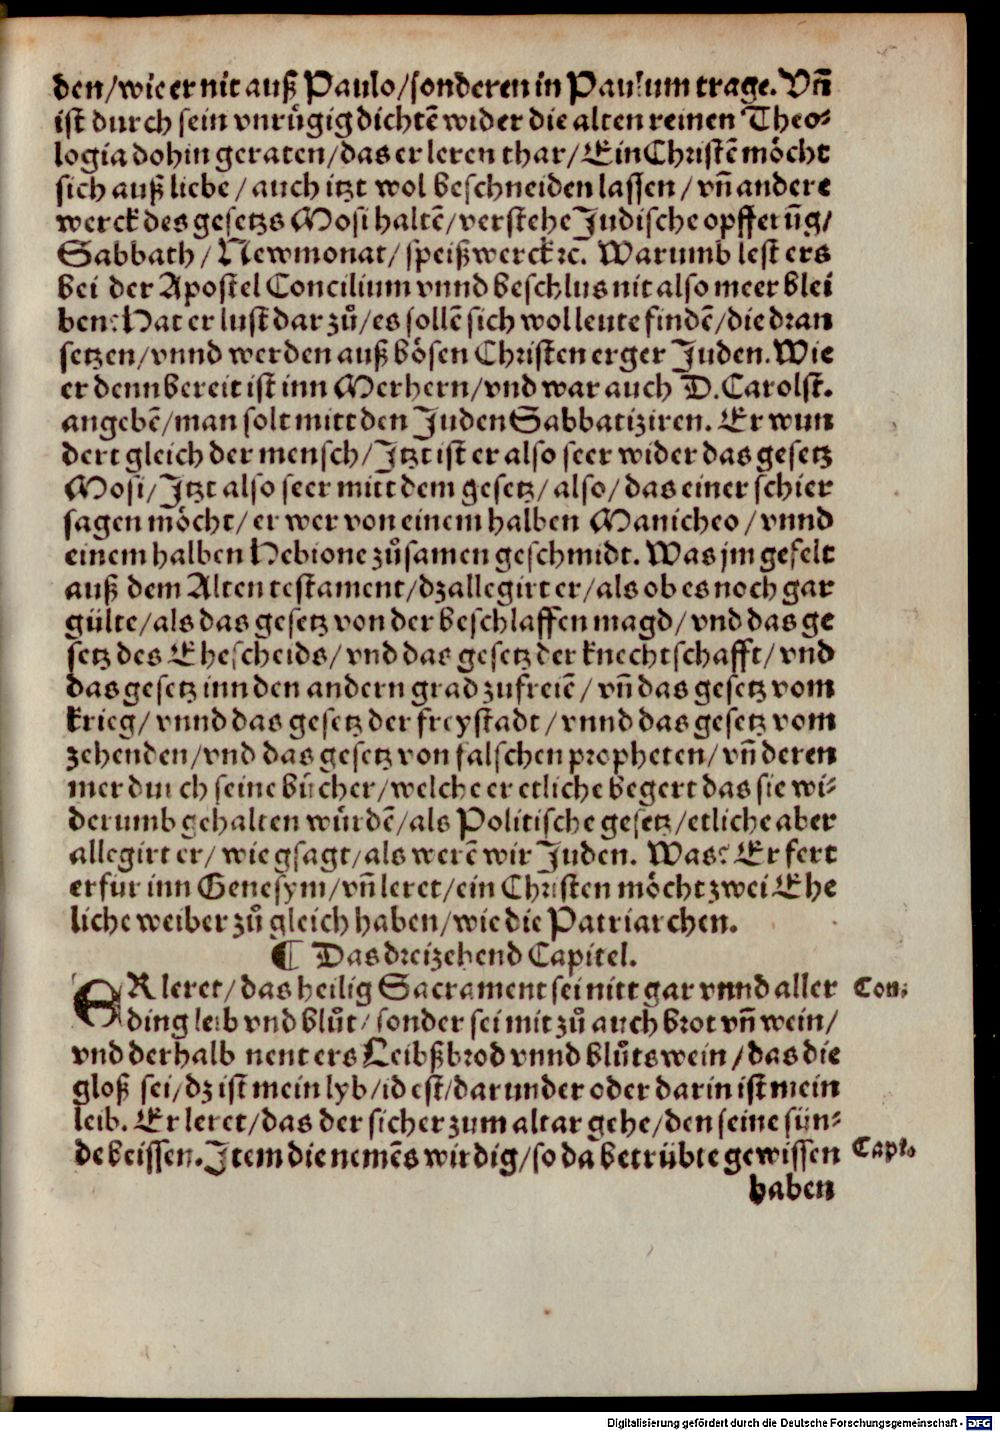 den/wie er nit auß Paulo/sonderen in Paulum trage. Vñ
ist durch sein vnrůgig dichtẽ wider die alten reinen Theo-
logia dohin geraten/das er leren thar/Ein Christẽ möcht
sich auß liebe/auch itzt wol beschneiden lassen/vñ andere
werck des gesetzs Mosi haltẽ/verstehe Judische opfferũg/
Sabbath/Newmonat/speißwerck ꝛc. Warumb lest ers
bei der Apostel Concilium vnnd beschlus nit also meer blei
ben: Hat er lust darzů/es sollẽ sich wol leute findẽ/die dran
setzen/vnnd werden auß bösen Christen erger Juden. Wie
er denn bereit ist inn Merhern/vnd war auch D. Carolst.
angebẽ/man solt mitt den Juden Sabbatiziren. Er wun
dert gleich der mensch/Jtzt ist er also seer wider das gesetz
Mosi/Jtzt also seer mitt dem gesetz/also/das einer schier
sagen möcht/er wer von einem halben Manicheo/vnnd
einem halben Hebione zůsamen geschmidt. Was jm gefelt
auß dem Alten testament/dz allegirt er/als ob es noch gar
gülte/als das gesetz von der beschlaffen magd/vnd das ge
setz des Ehescheids/vnd das gesetz der knechtschafft/vnd
das gesetz inn den andern grad zufreiẽ/vñ das gesetz vom
krieg/vnnd das gesetz der freystadt/vnnd das gesetz vom
zehenden/vnd das gesetz von falschen propheten/vñ deren
mer durch seine bücher/welche er etliche begert das sie wi-
derumb gehalten würdẽ/als Politische gesetz/etliche aber
allegirt er/wie gsagt/als werẽ wir Juden. Was? Er fert
erfür inn Genesym/vñ leret/ein Christen möcht zwei Ehe
liche weiber zů gleich haben/wie die Patriarchen.
¶ Das dreizehend Capitel.
ER leret/das heilig Sacrament sei nitt gar vnnd aller Con:
ding leib vnd blůt/sonder sei mit zů auch brot vñ wein/
vnd derhalb nent ers Leibßbrod vnnd blůtswein/das die
gloß sei/dz ist mein lyb/id est/darunder oder darin ist mein
leib. Er leret/das der sicher zum altar gehe/den seine sün-
de beissen. Jtem die nemẽs wirdig/so da betrübte gewissen Capt.
haben
Digitalisierung gefördert durch die Deutsche Forschungsgemeinschaft - DFG